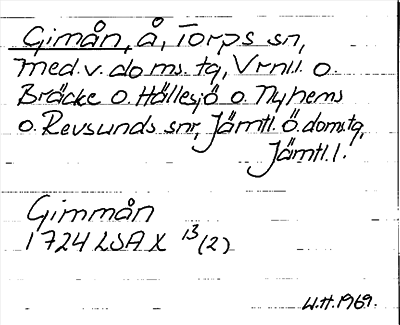 Gimån, å, Torps sn,
Med.v. doms. tg, Vrnl l. o.
Bräcke o. Hällesjö o. Nyhems
o. Revsunds snr, Jämtl. ö. doms.tg,
Jämtl. l.
Gimmån
1724 LSA X 13 (2)
W.H. 1969.